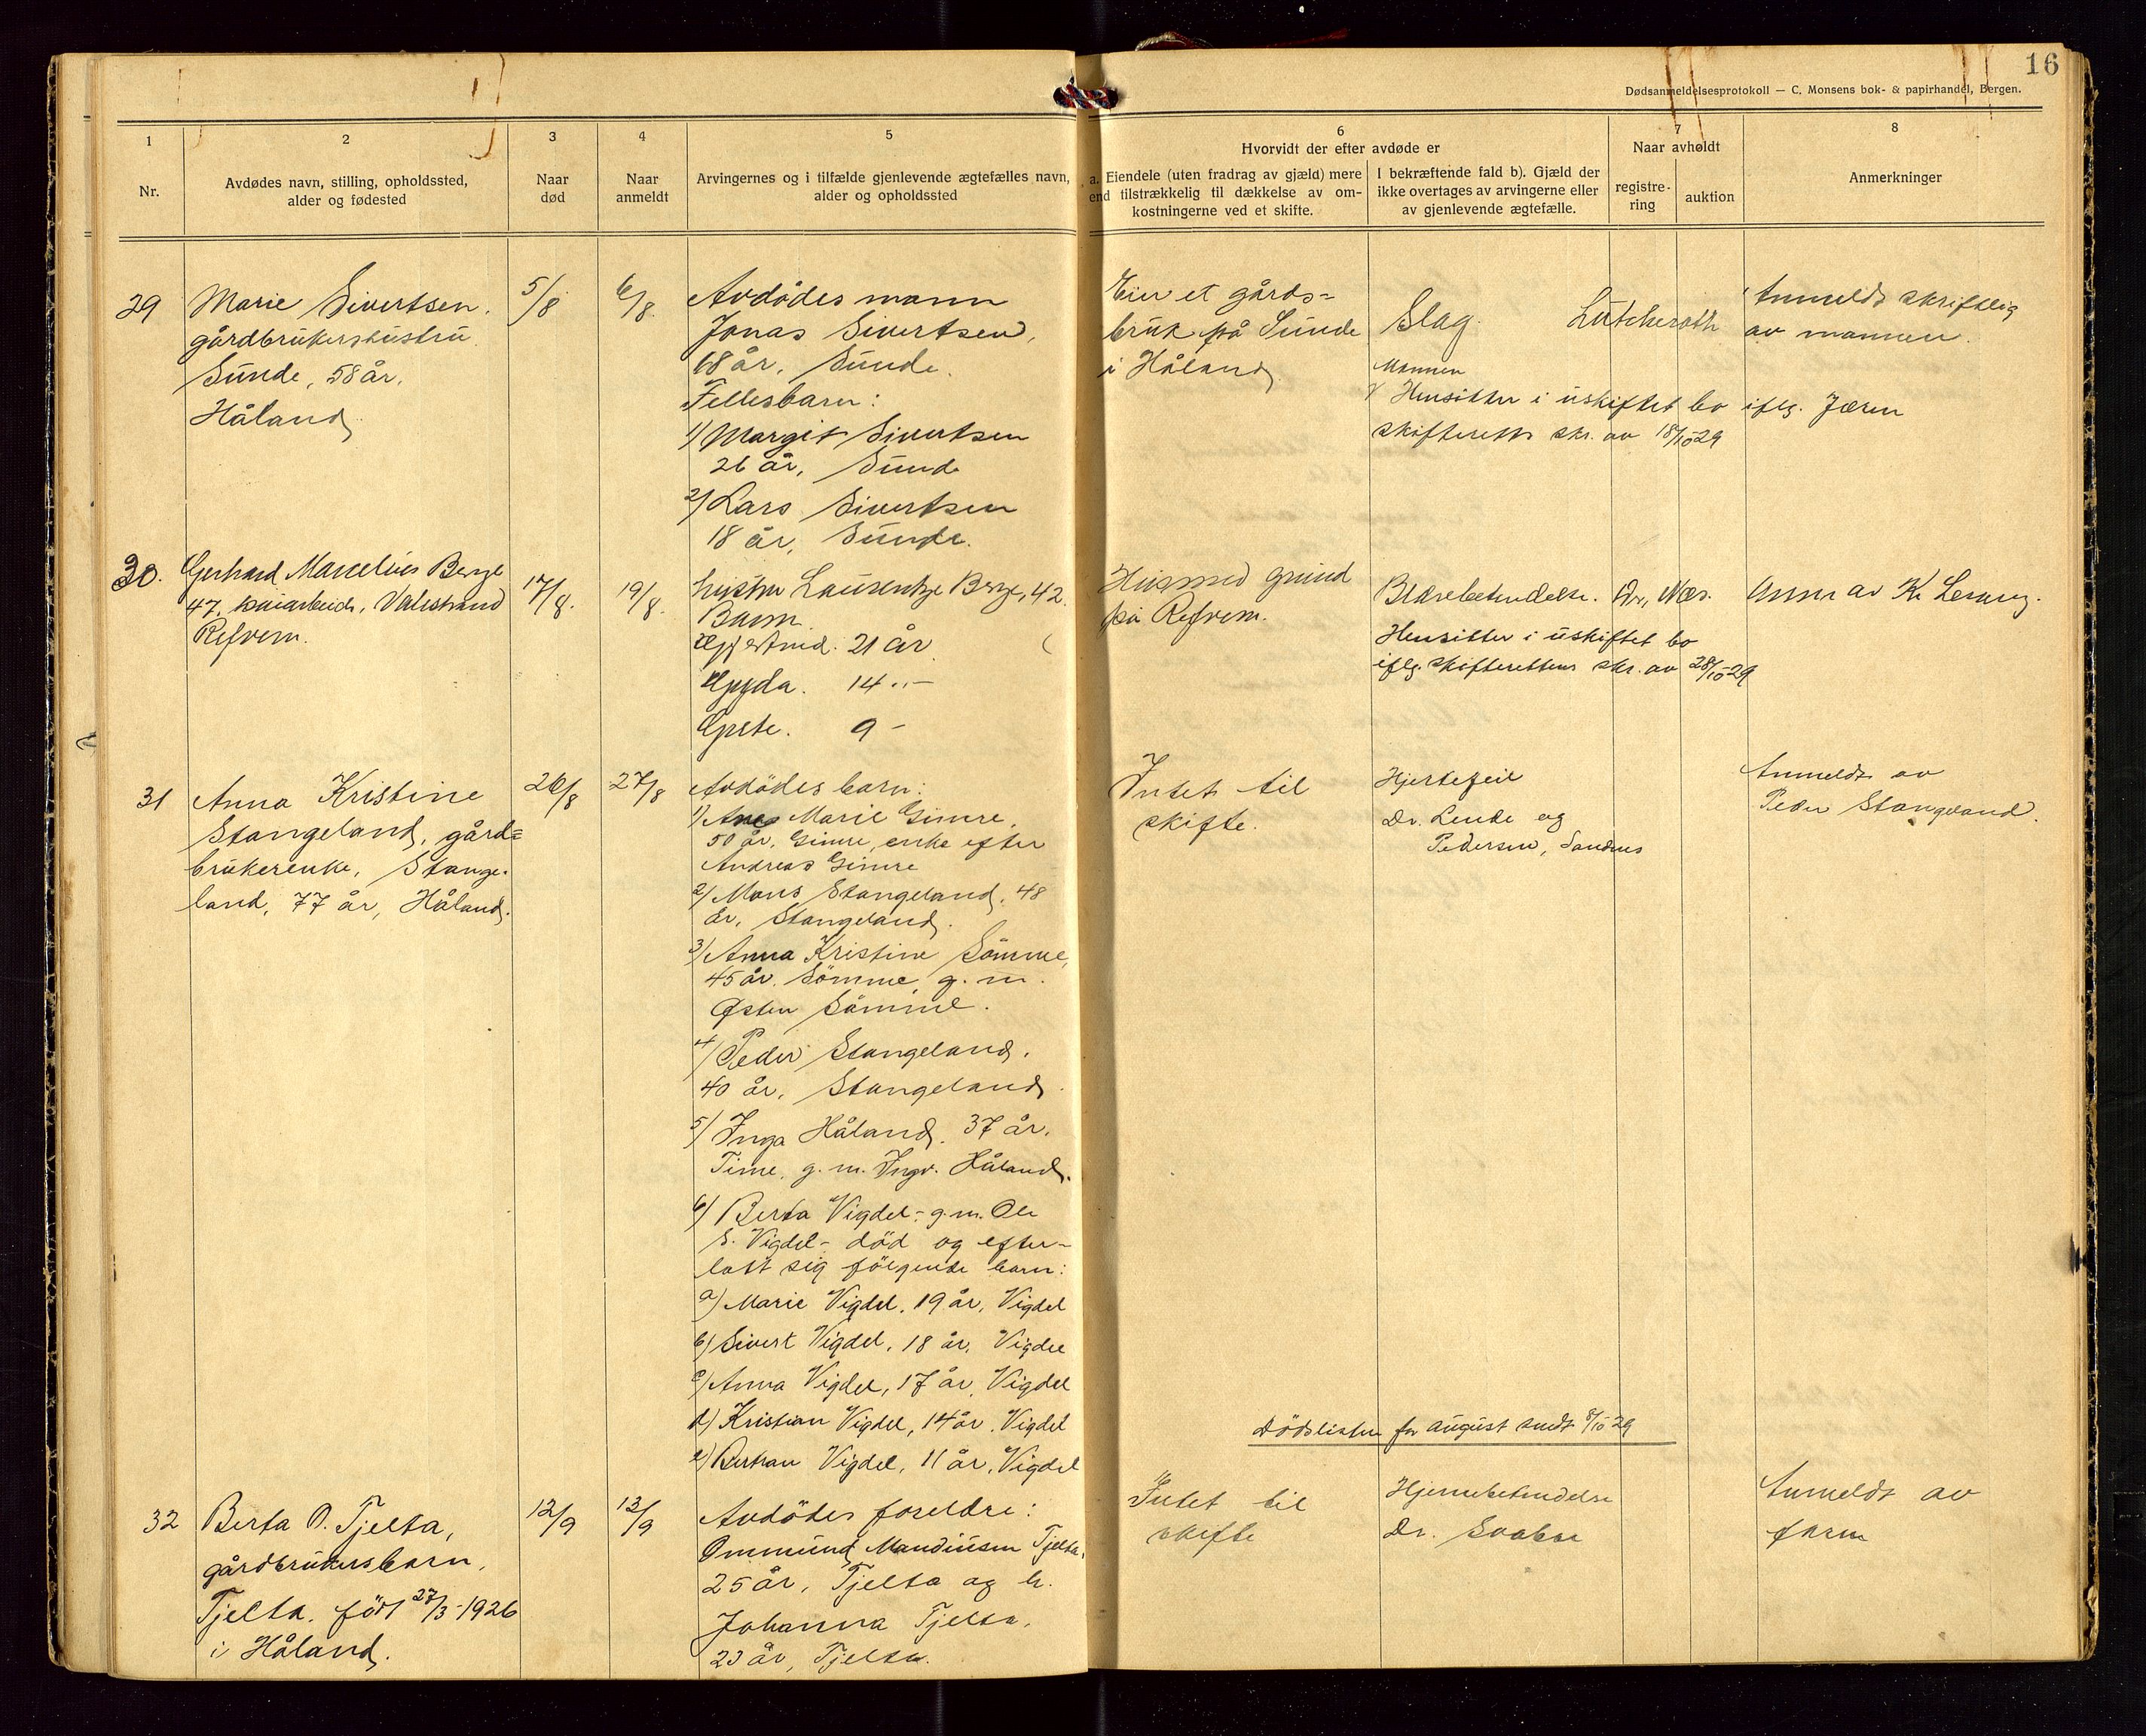 16
Dødsanmeldelsesprotokoll — C. Monsens bok- & papirhandel, Bergen.
1
Nr.
2
Avdødes navn, stilling, opholdssted,
alder og fødested
3
Naar
død
4
Naar
anmeldt
5
Arvingernes og i tilfælde gjenlevende ægtefælles navn,
alder og opholdssted
6
Hvorvidt der efter avdøde er
a. Eiendele (uten fradrag av gjæld) mere
end tilstrækkelig til dækkelse av om-
kostningerne ved et skifte.
I bekræftende fald b). Gjæld der
ikke overtages av arvingerne eller
av gjenlevende ægtefælle.
7
Naar avholdt
registre-
ring
auktion
8
Anmerkninger
29
Marie Sivertsen.
gårdbrukershustru
Sunde, 58 år.
Håland
5/8
6/8.
Avdödes mann
Jonas Sivertsen,
68 år, Sunde.
Fellesbarn:
1) Margit Sivertsen
26 år, Sunde
2) Lars Sivertsen
18 år, Sunde.
Eier et gårds=
bruk på Sunde
i Håland
Slag. Lütcheroth
Mannen
Hensitter i uskiftet bo iflg. Jæren
skifteretts skr. av 18/10-29
Anmeldt skriftlig
av mannen.
30.
Gerhard Marcelius Berge
47, kaiarbeider, Valestrand
Refvem.
17/8.
19/8.
hustru Lausentze Berge, 42.
Barn.
21 år
Gyda. 14 " -
Grete. 9 -
Hus med grund
på Refvem.
Blærebetendelse. Dr. Næs.
Hensitter i uskiftet bo
iflg. skifterettens skr. av 28/10-29
Anm av K.
31
Anna Kristine
Stangeland, gård=
brukerenke, Stange-
land, 77 år, Håland.
26/8
27/8
Avdödes barn:
1) Ane Marie Gimre,
50 år, Gimre, enke efter
Andreas Gimre
2) Mons Stangeland, 48
år, Stangeland.
3) Anna Kristine Sömme,
45 år, Sömme, g. m.
Østen Sömme.
4) Peder Stangeland,
40 år, Stangeland
5) Inga Håland, 37 år.
Time, g. m. Ingv. Håland.
6) Berta Vigdel - g. m. Ole
S. Vigdel - död og efter-
latt sig følgende barn:
a) Marie Vigdel, 19 år, Vigdel
b) Sivert Vigdel, 18 år, Vigdel
c) Anna Vigdel, 17 år, Vigdel
d) Kristian Vigdel, 14 år, Vigdel
e) Bertran Vigdel, 11 år, Vigdel
Intet til
skifte.
Hjertefeil
Dr. Lende og
Pedersen, Sandnes
Anmeldt av
Peder Stangeland.
Dödslisten for august sendt 8/10 29
32
Berta O. Tjelta,
gårdbrukersbarn,
Tjelta. født 27/3-1926
i Håland.
12/9
13/9
Avdödes foreldre:
Ommund Maudiusen Tjelta,
25 år, Tjelta og h.
Johanna Tjelta,
23 år, Tjelta.
Intet til
skifte
Hjernebetendelse
Dr. Svabøe
Anmeldt av
faren